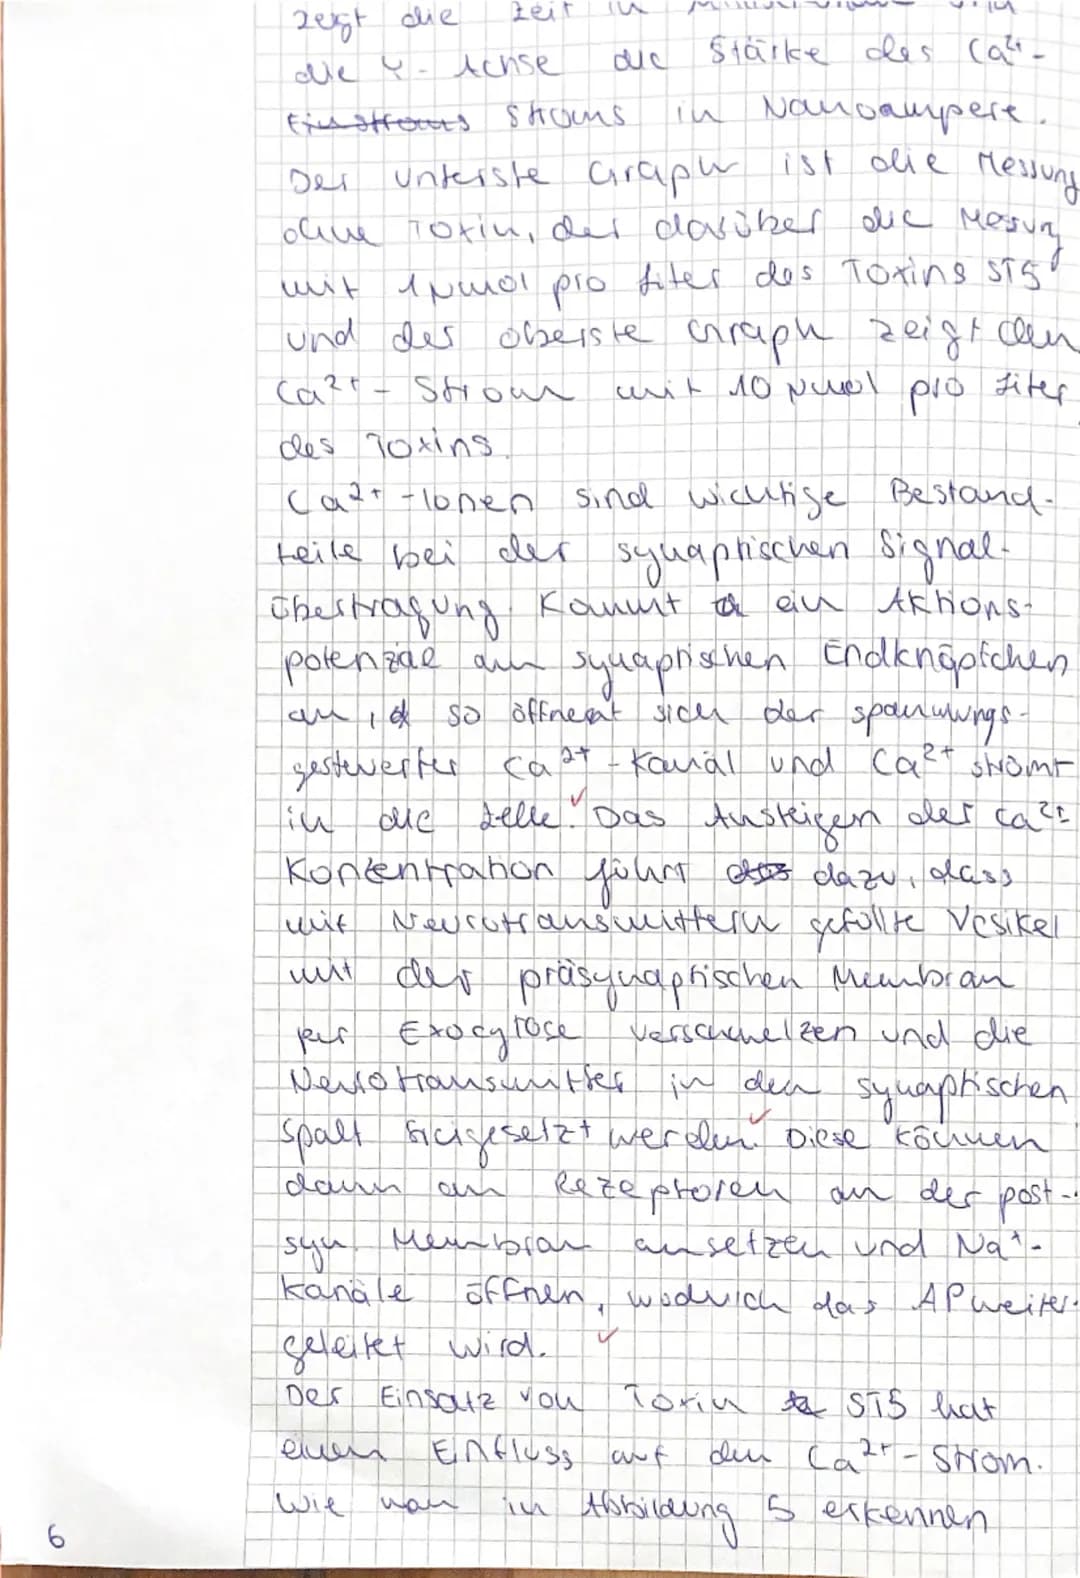 zeigt die Zeit in
die Y-Achse die Stärke des Ca²⁺-
Einstroms Stroms in Nanoampere.
Der unterste Graph ist die Messung
ohne Toxin, der darüber die Messung
mit 1 µmol pro Liter des Toxins ST5
und der oberste Graph zeigt den
Ca²⁺-Strom mit 10 µmol pro Liter
des Toxins.
Ca²⁺-Ionen sind wichtige Bestand-
teile bei der synaptischen Signal-
übertragung. Kommt ein Aktions-
potenzial am synaptischen Endknöpfchen
an, so öffnet sich der spannungs-
gesteuerter Ca²⁺-Kanal und Ca²⁺ strömt
in die Zelle. Das Ansteigen der Ca²⁺
Konzentration führt dazu, dass
mit Neurotransmittern gefüllte Vesikel
mit der präsynaptischen Membran
per Exocytose verschmelzen und die
Neurotransmitter in den synaptischen
Spalt freigesetzt werden. Diese können
dann an Rezeptoren an der post-
syn. Membran ansetzen und Na⁺-
Kanäle öffnen, wodurch das AP weiter-
geleitet wird.
Der Einsatz von Toxin ST5 hat
einen Einfluss auf den Ca²⁺-Strom.
Wie man in Abbildung 5 erkennen
6